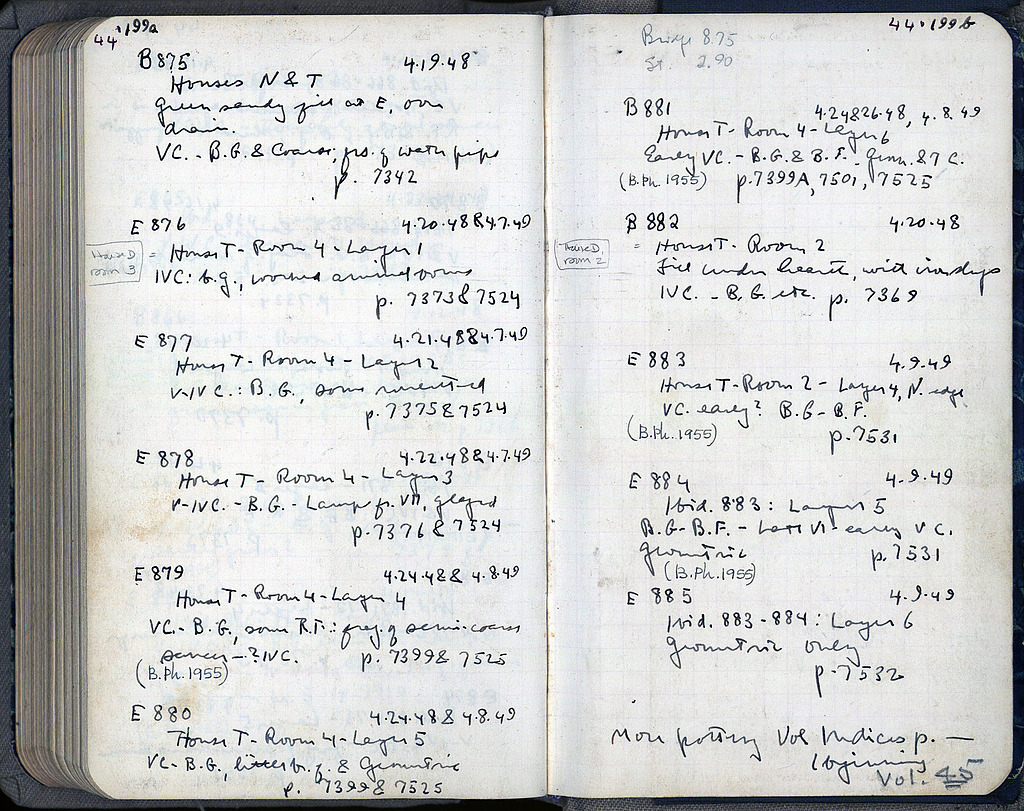 44.199a
B 875 4.19.48
Houses N & T
Green sandy fill at E, over
drain.
VC. - B.G. & Coarse; frs. of water pipe
p. 7342
E 876 4.20.48 & 4.7.49
House D, room 3 = House T - Room 4 - Layer 1
IVC: b.g., worked animal bones
p. 7373 & 7524
E 877 4.21.48 & 4.7.49
House T - Room 4 - Layer 2
V-IVC.: B.G., some
p. 7375 & 7524
E 878 4.22.48 & 4.7.49
House T - Room 4 - Layer 3
V-IVC. - B.G. - Lamp fr. VII, glazed
p. 7376 & 7524
E 879 4.24.48 & 4.8.49
House T - Room 4 - Layer 4
VC. - B.G., some R.F.: frag. of semi-coarse
- ? IVC. p. 7399 & 7525
(B.Ph. 1955)
E 880 4.24.48 & 4.8.49
House T - Room 4 - Layer 5
VC - B.G., b.f. & Geometric
p. 7399 & 7525
44.199b
Bridge 8.75
St. 2.90
B 881 4.24&26.48, 4.8.49
House T - Room 4 - Layer 6
Early VC. - B.G. & B.F. - Geom. & 7 C.
(B.Ph. 1955) p. 7399A, 7501, 7525
B 882 4.20.48
House D, room 2 = House T - Room 2
Fill under hearth, with iron slags
IVC. - B.G. etc. p. 7369
E 883 4.9.49
House T - Room 2 - Layer 4, N. edge
VC. early? B.G - B.F.
(B.Ph. 1955) p. 7531
E 884 4.9.49
Ibid. 883: Layer 5
B.G - B.F. - Late VI - early V C.
Geometric p. 7531
(B.Ph. 1955)
E 885 4.9.49
Ibid. 883-884: Layer 6
Geometric only
p. 7532
More pottery Vol Indices p. —
(beginning
Vol. 45